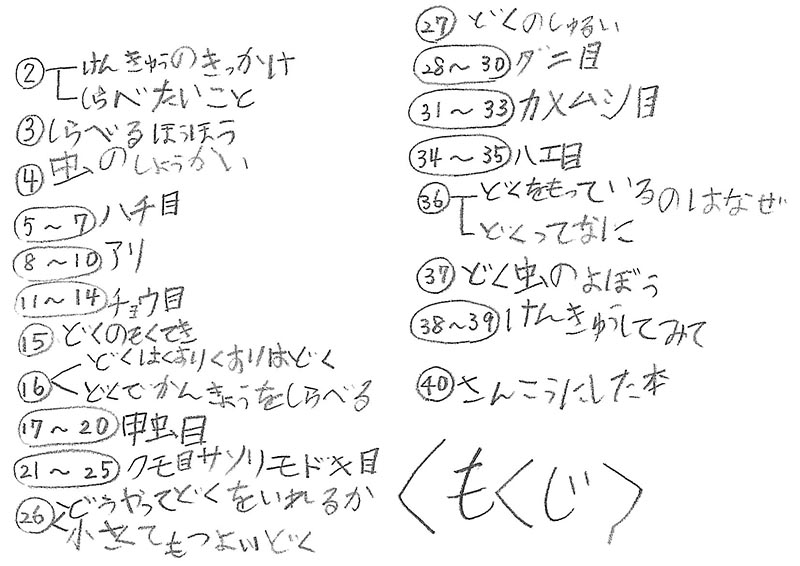 ② けんきゅうのきっかけ
しらべたいこと
③ しらべるほうほう
④ 虫のしょうかい
5〜7 ハチ目
8〜10 アリ
11〜14 チョウ目
⑮ どくのもくてき
⑯ どくはくすりくすりはどく
どくでかんきょうをしらべる
17〜20 甲虫目
21〜25 クモ目サソリモドキ目
㉖ どうやってどくをいれるか
小さくてもつよいどく
㉗ どくのしゅるい
28〜30 ダニ目
31〜33 カメムシ目
34〜35 ハエ目
㊱ どくをもっているのはなぜ
どくってなに
㊲ どく虫のよぼう
38〜39 けんきゅうしてみて
㊵ さんこうにした本
〈もくじ〉